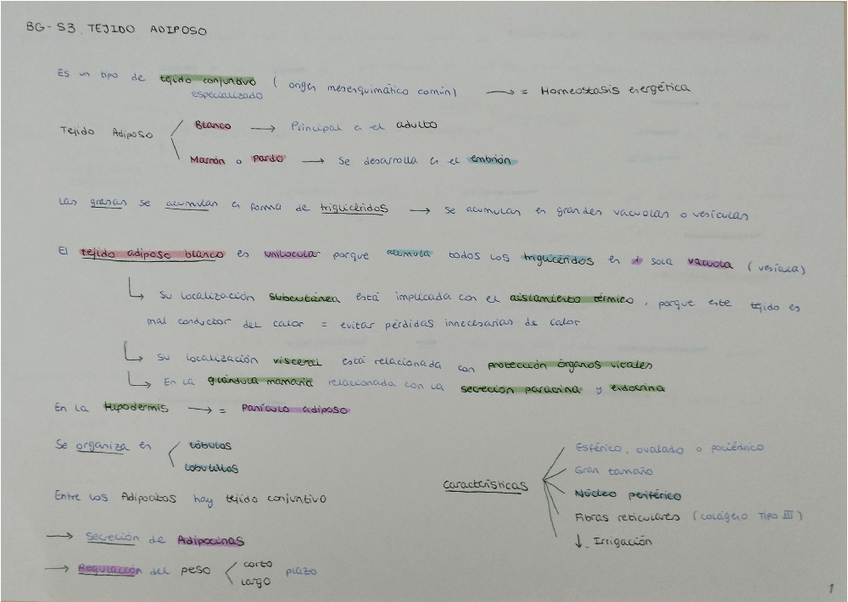 BG-S3. TEJIDO ADIPOSO
Es un tipo de tejido conjuntivo (origen mesenquimático común) → = Homeostasis energética
especializado
Tejido Adiposo
Blanco → Principal en el adulto
Marrón o pardo → Se desarrolla en el embrión
Las grasas se acumulan en forma de triglicéridos → se acumulan en grandes vacuolas o vesículas
El tejido adiposo blanco es unilocular porque acumula todos los triglicéridos en 1 sola vacuola (vesícula)
Su localización subcutánea está implicada con el aislamiento térmico, porque este tejido es
mal conductor del calor = evitar pérdidas innecesarias de calor
Su localización visceral está relacionada con protección órganos vitales
En la glándula mamaria relacionada con la secreción paracrina y endocrina
En la Hipodermis → = Panículo adiposo
Se organiza en
lóbulos
lobulillos
Entre los Adipocitos hay tejido conjuntivo
→ Secreción de Adipocinas
→ Regulación del peso
corto
largo
plazo
Características
Esférico, ovalado o poliédrico
Gran tamaño
Núcleo periférico
Fibras reticulares (colágeno Tipo III)
↓ Irrigación
1